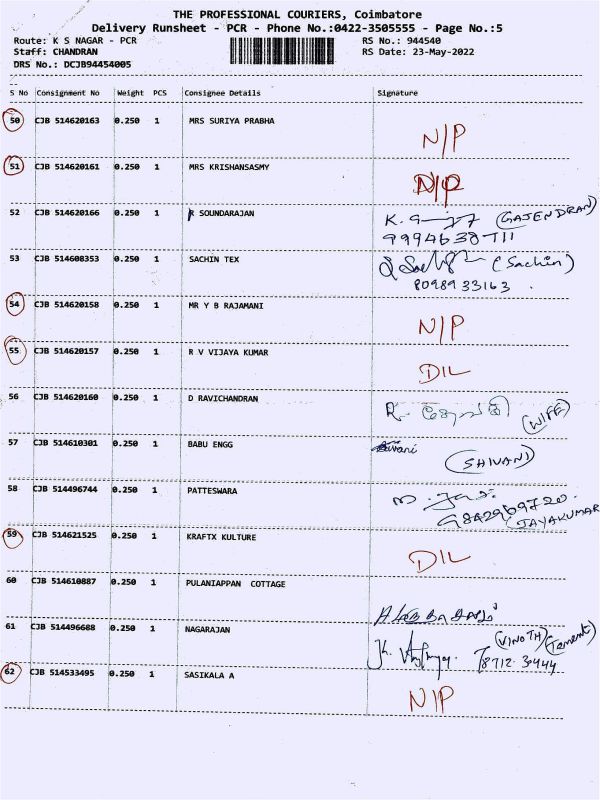 THE PROFESSIONAL COURIERS, Coimbatore
Delivery Runsheet - PCR - Phone No.:0422-3505555 - Page No.:5
Route: K S NAGAR - PCR RS No.: 944540
Staff: CHANDRAN RS Date: 23-May-2022
DRS No.: DCJB94454005
S No Consignment No Weight PCS Consignee Details Signature
50 CJB 514620163 0.250 1 MRS SURIYA PRABHA N/P
51 CJB 514620161 0.250 1 MRS KRISHANSASMY N/P
52 CJB 514620166 0.250 1 R SOUNDARAJAN (GAJENDRAN)
53 CJB 514608353 0.250 1 SACHIN TEX (Sachin)
8098933163
54 CJB 514620158 0.250 1 MR Y B RAJAMANI N/P
55 CJB 514620157 0.250 1 R V VIJAYA KUMAR D/L
56 CJB 514620160 0.250 1 D RAVICHANDRAN (WIFE)
57 CJB 514610301 0.250 1 BABU ENGG (SHIVANI)
58 CJB 514496744 0.250 1 PATTESWARA
9842969720
(JAYAKUMAR
59 CJB 514621525 0.250 1 KRAFTX KULTURE D/L
60 CJB 514610887 0.250 1 PULANIAPPAN COTTAGE
61 CJB 514496688 0.250 1 NAGARAJAN (VINOTH)
62 CJB 514533495 0.250 1 SASIKALA A N/P